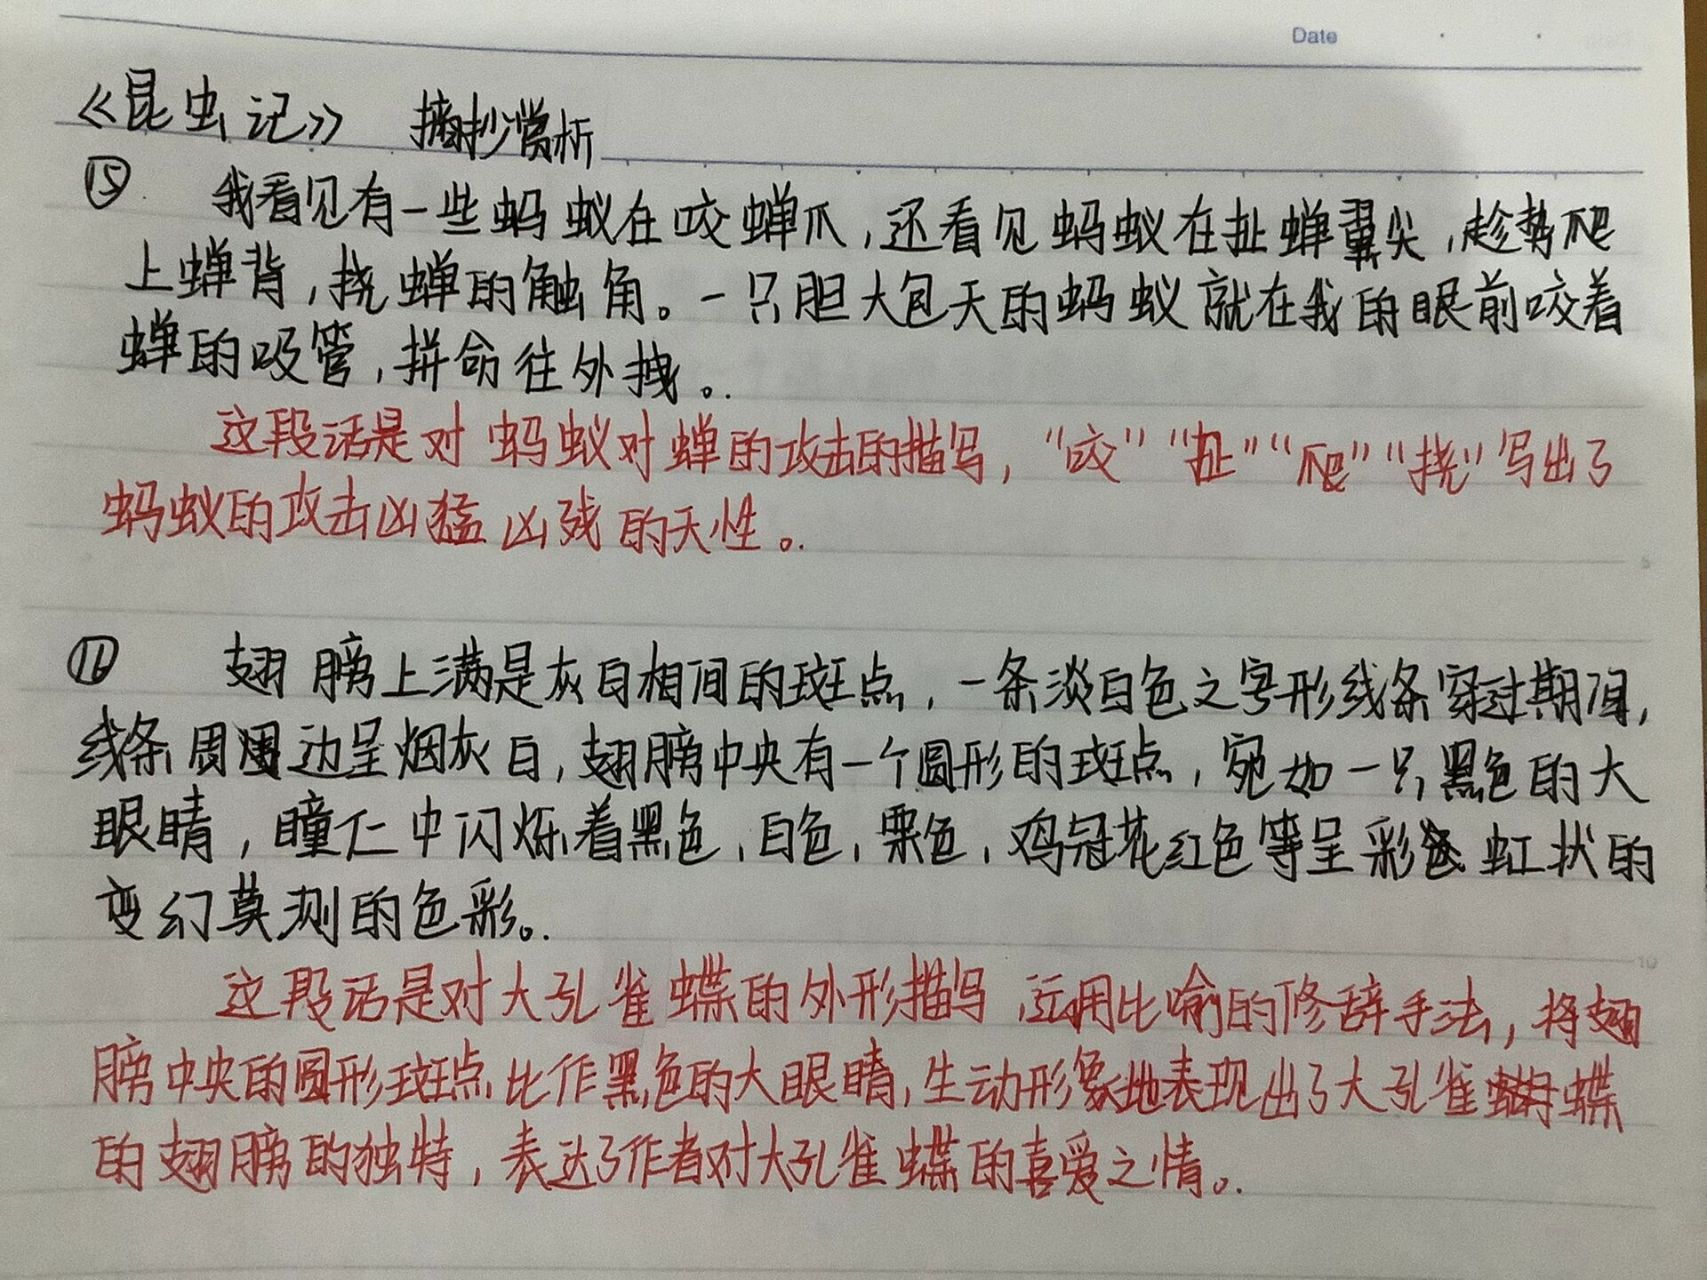 Date
《昆虫记》 摘抄赏析
⑮ 我看见有一些蚂蚁在咬蝉爪,还看见蚂蚁在扯蝉翼尖,趁势爬
上蝉背,挠蝉的触角。一只胆大包天的蚂蚁就在我的眼前咬着
蝉的吸管,拼命往外拽。
这段话是对蚂蚁对蝉的攻击的描写,“咬”“扯”“爬”“挠”写出了
蚂蚁的攻击凶猛凶残的天性。
5
⑯ 翅膀上满是灰白相间的斑点,一条淡白色之字形线条穿过期间,
线条周边呈烟灰白,翅膀中央有一个圆形的斑点,宛如一只黑色的大
眼睛,瞳仁中闪烁着黑色,白色,栗色,鸡冠花红色等呈彩虹状的
变幻莫测的色彩。
10
这段话是对大孔雀蝶的外形描写,运用比喻的修辞手法,将翅
膀中央的圆形斑点比作黑色的大眼睛,生动形象地表现出了大孔雀蝶
的翅膀的独特,表达了作者对大孔雀蝶的喜爱之情。